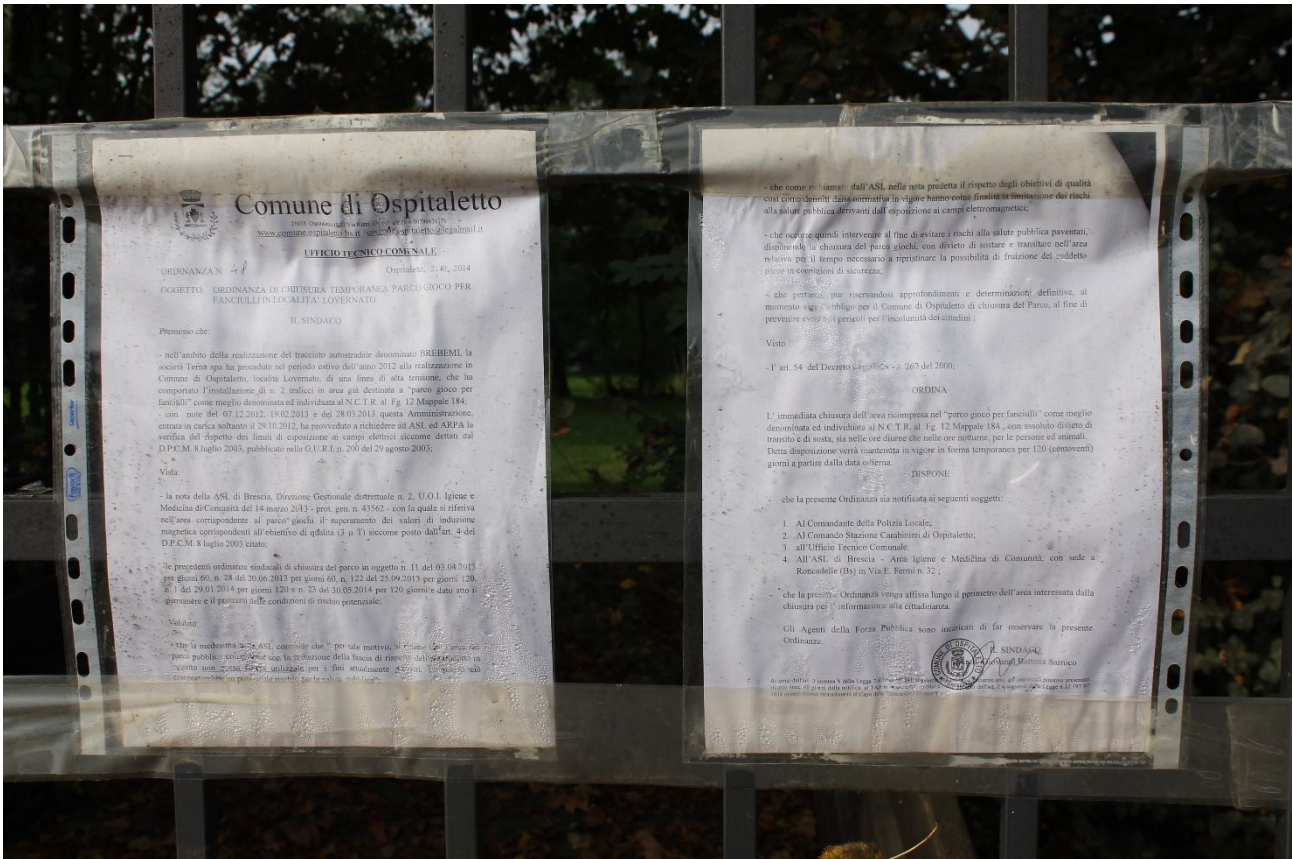 Comune di Ospitaletto
www.comune.ospitaletto.bs.it
UFFICIO TECNICO COMUNALE
ORDINANZA N. 48 Ospitaletto, 2. 2014
OGGETTO: ORDINANZA DI CHIUSURA TEMPORANEA PARCO GIOCO PER
FANCIULLI IN LOCALITA' LOVERNATO.
IL SINDACO
Premesso che:
- nell'ambito della realizzazione del tracciato autostradale denominato BREBEMI, la
società Terna spa ha proceduto nel periodo estivo dell'anno 2012 alla realizzazione in
Comune di Ospitaletto, località Lovernato, di una linea di alta tensione, che ha
comportato l'installazione di n. 2 tralicci in area già destinata a "parco gioco per
fanciulli" come meglio denominata ed individuata al N.C.T.R. al Fg. 12 Mappale 184;
- con note del 07.12.2012, 19.02.2013 e del 28.03.2013 questa Amministrazione,
entrata in carica soltanto il 29.10.2012, ha provveduto a richiedere ad ASL ed ARPA la
verifica del rispetto dei limiti di esposizione ai campi elettrici siccome dettati dal
D.P.C.M. 8 luglio 2003, pubblicato nella G.U.R.I. n. 200 del 29 agosto 2003;
Vista:
- la nota della ASL di Brescia, Direzione Gestionale distrettuale n. 2, U.O.I. Igiene e
Medicina di Comunità del 14 marzo 2013 - prot. gen. n. 43562 - con la quale si riferiva
nell'area corrispondente al parco giochi il superamento dei valori di induzione
magnetica corrispondenti all'obiettivo di qualità (3 µ T) siccome posto dall'art. 4 del
D.P.C.M. 8 luglio 2003 citato;
-le precedenti ordinanze sindacali di chiusura del parco in oggetto n. 11 del 03.04.2013
per giorni 60, n. 28 del 20.06.2013 per giorni 60, n. 122 del 25.09.2013 per giorni 120,
n. 1 del 29.01.2014 per giorni 120 e n. 23 del 30.05.2014 per 120 giorni e dato atto il
permanere e il protrarsi delle condizioni di rischio potenziale;
Valutato
- che la medesima ASL conclude che " per tale motivo, si
parco pubblico con la protezione della fascia di rispetto
non possa utilizzata per i fini attualmente
di rischio per la salute pubblica"
- che come richiamato dall'ASL nella nota predetta il rispetto degli obiettivi di qualità
così come definiti dalla normativa in vigore hanno come finalità la limitazione dei rischi
alla salute pubblica derivanti dall'esposizione ai campi elettromagnetici;
- che occorre quindi intervenire al fine di evitare i rischi alla salute pubblica paventati,
disponendo la chiusura del parco giochi, con divieto di sostare e transitare nell'area
relativa per il tempo necessario a ripristinare la possibilità di fruizione del suddetto
in condizioni di sicurezza;
- che pertanto, pur riservandosi approfondimenti e determinazioni definitive, al
momento vige l'obbligo per il Comune di Ospitaletto di chiusura del Parco, al fine di
prevenire pericoli per l'incolumità dei cittadini ;
Visto
- l' art. 54 del Decreto Legislativo n. 267 del 2000;
ORDINA
L' immediata chiusura dell'area ricompresa nel "parco gioco per fanciulli" come meglio
denominata ed individuata al N.C.T.R. al Fg. 12 Mappale 184 , con assoluto divieto di
transito e di sosta, sia nelle ore diurne che nelle ore notturne, per le persone ed animali.
Detta disposizione verrà mantenuta in vigore in forma temporanea per 120 (centoventi)
giorni a partire dalla data odierna.
DISPONE
- che la presente Ordinanza sia notificata ai seguenti soggetti:
1. Al Comandante della Polizia Locale;
2. Al Comando Stazione Carabinieri di Ospitaletto;
3. all'Ufficio Tecnico Comunale.
4. All'ASL di Brescia - Area Igiene e Medicina di Comunità, con sede a
Roncadelle (Bs) in Via E. Fermi n. 32 ;
- che la presente Ordinanza venga affissa lungo il perimetro dell'area interessata dalla
chiusura per l' informazione alla cittadinanza.
Gli Agenti della Forza Pubblica sono incaricati di far osservare la presente
Ordinanza.
IL SINDACO
Giovanni Battista Sarnico
COMUNE DI OSPITALETTO
Favorit